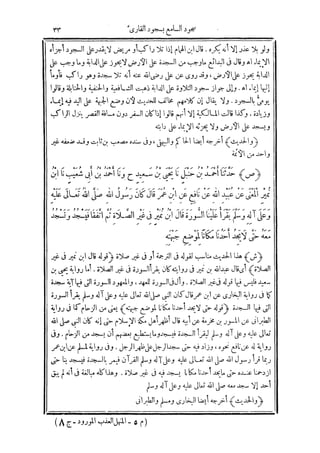 سجود السامع بسجود القارئ ٣٣
ولو بلا عذر إلا أنه يكره. قال ابن الهمام إذا تلا راكبا أو مريض لا يقدر على السجود أجزأه
الإيماء اه وقال فى البدائع ماوجب من السجدة على الأرض لايجوز على الدابة وما وجب على
الدابة يجوز على الأرض، وقد روى عن على رضى الله عنه أنه تلا سجدة وهو راكب فأومأ
إليها إيماء. اه. وإلى جواز سجود التلاوة على الدابة ذهبت الشافعية والحنفية والحنابلة وقالوا
يومئ بالسجود. ولا يقال إن كلامهم مخالف لحديث لأن وضع الجبهة على اليد فيه إيماء
وزيادة. وكذا قالت المالكية إلا أنهم قالوا إذا كان السفر دون مسافة القصر ينزل الراكب
ويسجد على الأرض ولا يجزئه الإيماء على دابته
﴿والحديث﴾ أخرجه أيضا الحاكم والبيهقى، وفى سنده مصعب بن ثابت وقد ضعفه غير
واحد من الأئمة
﴿ص﴾ حَدَّثَنَا أَحْمَدُ بْنُ حَنْبَلٍ نَا يَحْيَى بْنُ سَعِيدٍ ح وَنَا أَحْمَدُ بْنُ أَبِى شُعَيْبٍ نَا ابْنُ
نُمَيْرٍ الْمَعْنَى عَنْ عُبَيْدِ اللهِ عَنْ نَافِعٍ عَنِ ابْنِ عُمَرَ قَالَ كَانَ رَسُولُ اللهِ صَلَّى اللهُ تَعَالَى عَلَيْهِ
وَعَلَى آلِهِ وَسَلَّمَ يَقْرَأُ عَلَيْنَا السُّورَةَ قَالَ ابْنُ نُمَيْرٍ فِى غَيْرِ الصَّلَاةِ ثُمَّ اتَّفَقَا فَيَسْجُدُ وَنَسْجُدُ
مَعَهُ حَتَّى لَا يَجِدَ أَحَدُنَا مَكَانًا لِمَوْضِعِ جَبْهَتِهِ
﴿ش﴾ هذا الحديث مناسب لقوله فى الترجمة أو فى غير صلاة ﴿قوله قال ابن نمير فى غير
الصلاة﴾ أى قال عبد الله بن نمير فى روايته كان يقرأ السورة فى غير الصلاة. أما رواية يحيى بن
سعيد فليس فيها قوله فى غير الصلاة. وأل فى السورة للعهد، والمعهود السورة التى فيها آية سجدة
كما فى رواية البخارى عن ابن عمر قال كان النبى صلى الله تعالى عليه وعلى آله وسلم يقرأ السورة
التى فيها السجدة ﴿قوله حتى لا يجد أحدنا مكانا لموضع جبهته﴾ يعنى من الزحام كما فى رواية
الطبرانى عن المسور بن مخرمة عن أبيه قال أظهر أهل مكة الإسلام حتى إنه كان النبى صلى الله
تعالى عليه وعلى آله وسلم ليقرأ السجدة فيسجد وما يستطيع بعضهم أن يسجد من الزحام. وفى
رواية له عن نافع نحوه، وزاد فيه حتى سجد الرجل على ظهر الرجل. وفى رواية لمسلم عن ابن عمر
ربما قرأ رسول الله صلى الله تعالى عليه وعلى آله وسلم القرآن فيمر بالسجدة فيسجد بنا حتى
ازدحمنا عنده حتى ما يجد أحدنا مكانا يسجد فيه فى غير صلاة. وهذا كناية مبالغة فى أنه لم يبق
أحد إلا سجد معه صلى الله تعالى عليه وعلى آله وسلم
﴿والحديث﴾ أخرجه أيضا البخارى ومسلم والطبرانى
(م ٥ - المنهل العذب المورود - ج ٨)